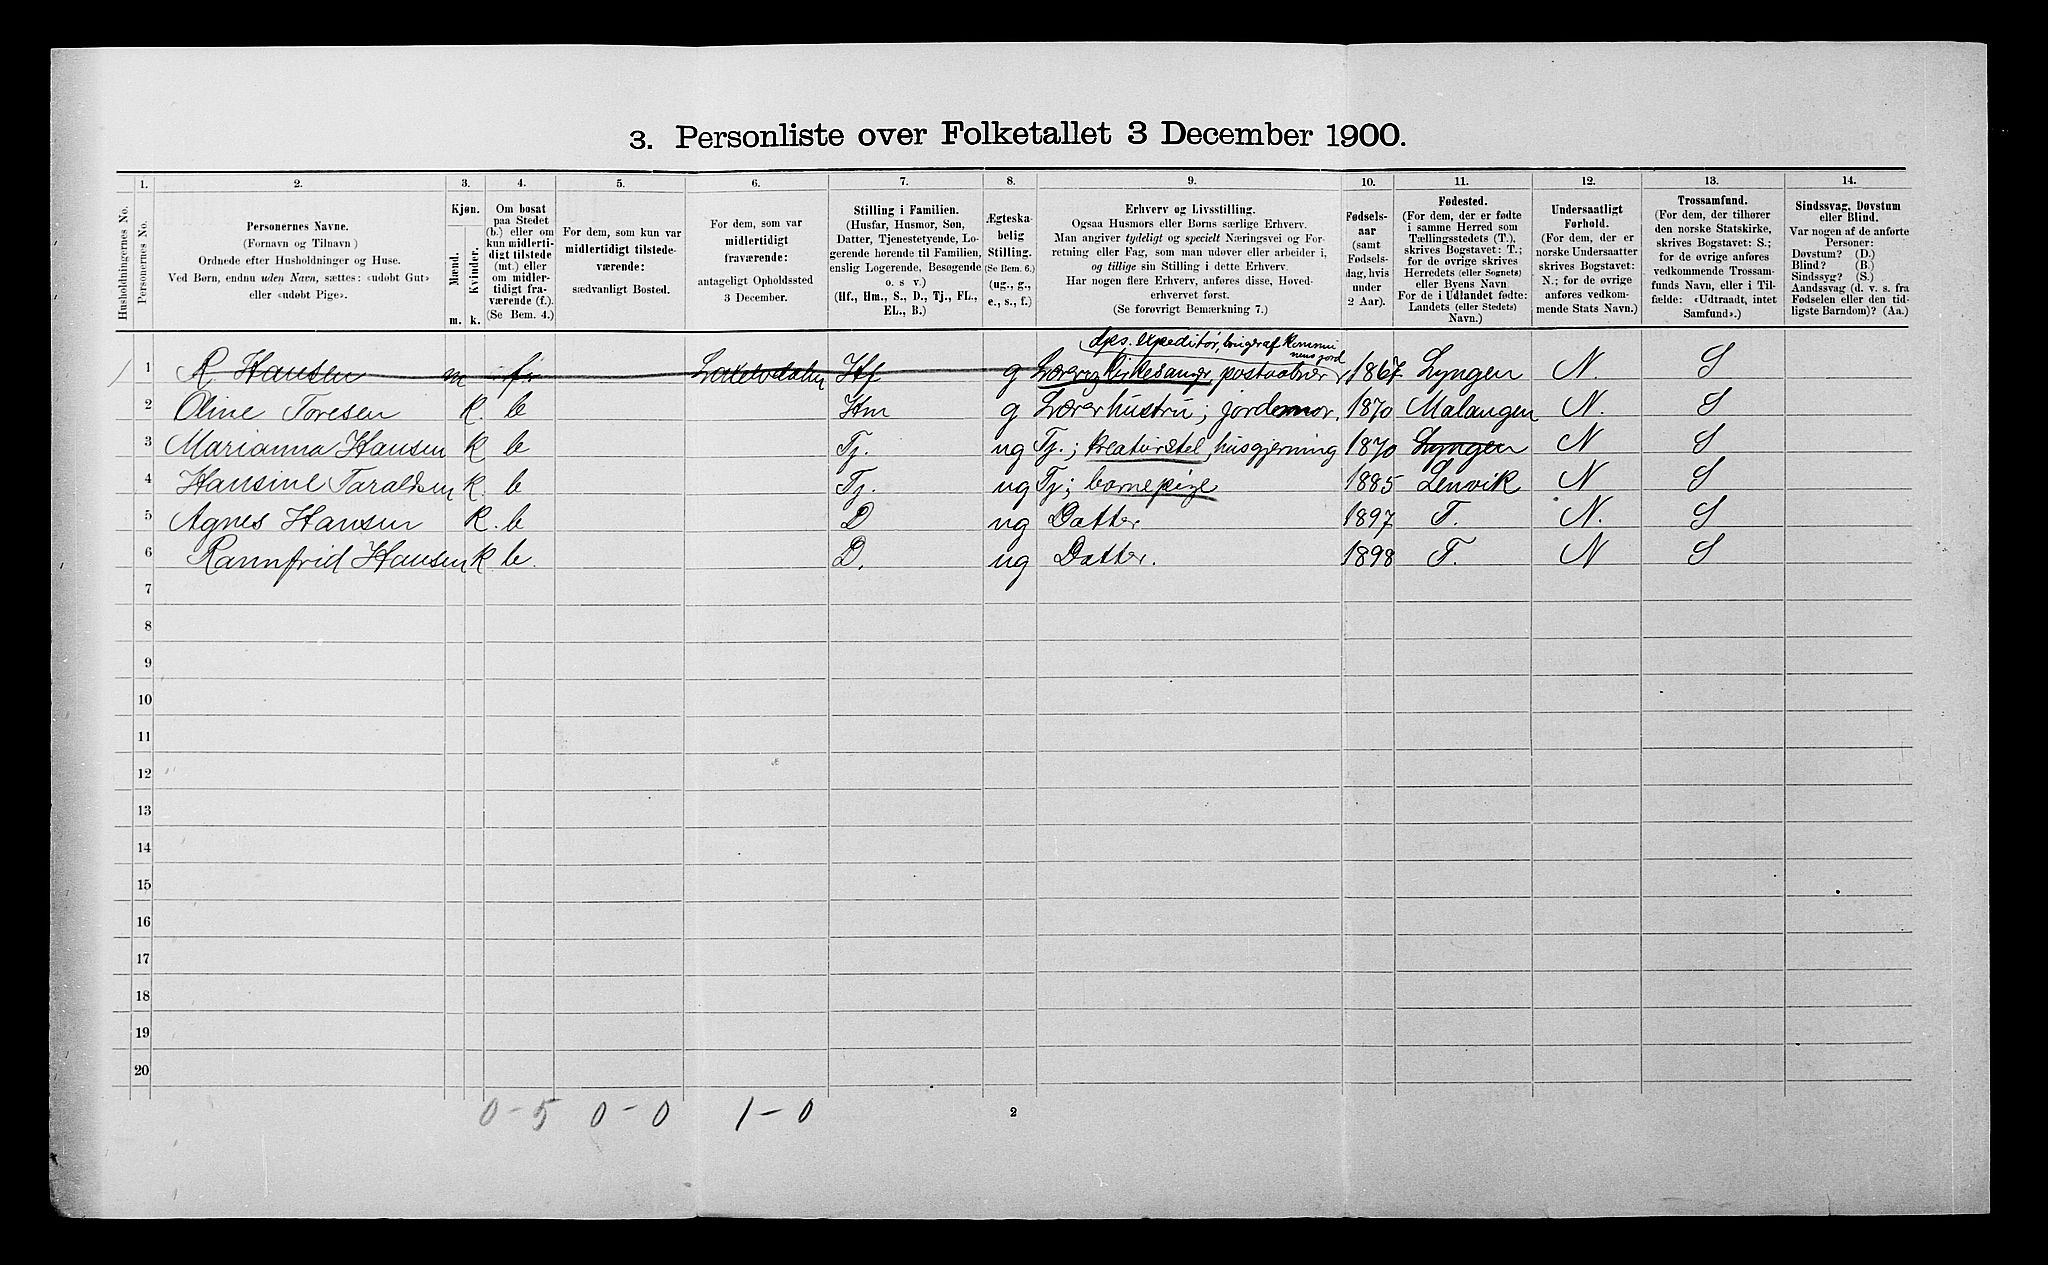 3. Personliste over Folketallet 3 December 1900.
1. 2. 3. 4. 5. 6. 7. 8. 9. 10. 11. 12. 13. 14.
Husholdningernes No.
Personernes No.
Personernes Navne.
(Fornavn og Tilnavn)
Ordnede efter Husholdninger og Huse.
Ved Børn, endnu uden Navn, sættes: «udøbt Gut»
eller «udøbt Pige».
Kjøn.
Mænd.
Kvinder.
m. k.
Om bosat
paa Stedet
(b.) eller om
kun midlerti-
digt tilstede
(mt.) eller
om midler-
tidigt fra-
værende (f.).
(Se Bem. 4.)
For dem, som kun var
midlertidigt tilstede-
værende:
sædvanligt Bosted.
For dem, som var
midlertidigt
fraværende:
antageligt Opholdssted
3 December.
Stilling i Familien.
(Husfar, Husmor, Søn,
Datter, Tjenestetyende, Lo-
gerende hørende til Familien,
enslig Logerende, Besøgende
o. s v.)
(Hf., Hm., S., D., Tj., FL.,
EL., B.)
Ægteska-
belig
Stilling.
(Se Bem. 6.)
(ug., g.,
e., s., f.)
Erhverv og Livsstilling.
Ogsaa Husmors eller Børns særlige Erhverv.
Man angiver tydeligt og specielt Næringsvei og For-
retning eller Fag, som man udøver eller arbeider i,
og tillige sin Stilling i dette Erhverv.
Har nogen flere Erhverv, anføres disse, Hoved-
erhvervet først.
(Se forøvrigt Bemærkning 7.)
Fødsels-
aar
(samt
Fødsels-
dag, hvis
under
2 Aar).
Fødested.
(For dem, der er fødte
i samme Herred som
Tællingsstedets (T.),
skrives Bogstavet: T.;
for de øvrige skrives
Herredets (eller Sognets)
eller Byens Navn
For de i Udlandet fødte:
Landets (eller Stedets)
Navn.)
Undersaatligt
Forhold.
(For dem, der er
norske Undersaatter
skrives Bogstavet:
N.; for de øvrige
anføres vedkom-
mende Stats Navn.)
Trossamfund.
(For dem, der tilhører
den norske Statskirke,
skrives Bogstavet: S.;
for de øvrige anføres
vedkommende Trossam-
funds Navn, eller i Til-
fælde: «Udtraadt, intet
Samfund».)
Sindssvag, Døvstum
eller Blind.
Var nogen af de anførte
Personer:
Døvstum? (D.)
Blind? (B.)
Sindssyg? (S.)
Aandssvag (d. v. s. fra
Fødselen eller den tid-
ligste Barndom)? (Aa.)
dps. expeditør,
1 1 R Hansen m f Hf g Lærer, kirkesanger, postaabner 1867 Lyngen N. S
2 Oline Toresen K. b Hm g Lærerhustru; jordemor. 1870 Malangen N. S
3 Marianna Hansen K b Tj. ug Tj.; kreaturstel, husgjerning 1870 Lyngen N S
4 Hansine Taraldsen K. b Tj. ug Tj; barnepige 1885 Lenvik N S
5 Agnes Hansen K. b D ug Datter 1897 T. N. S
6 Rannfrid Hansen K b. D. ug Datter. 1898 T. N S
7
8
9
10
11
12
13
14
15
16
17
18
19
20
0 - 5 0 - 0 1 - 0 2